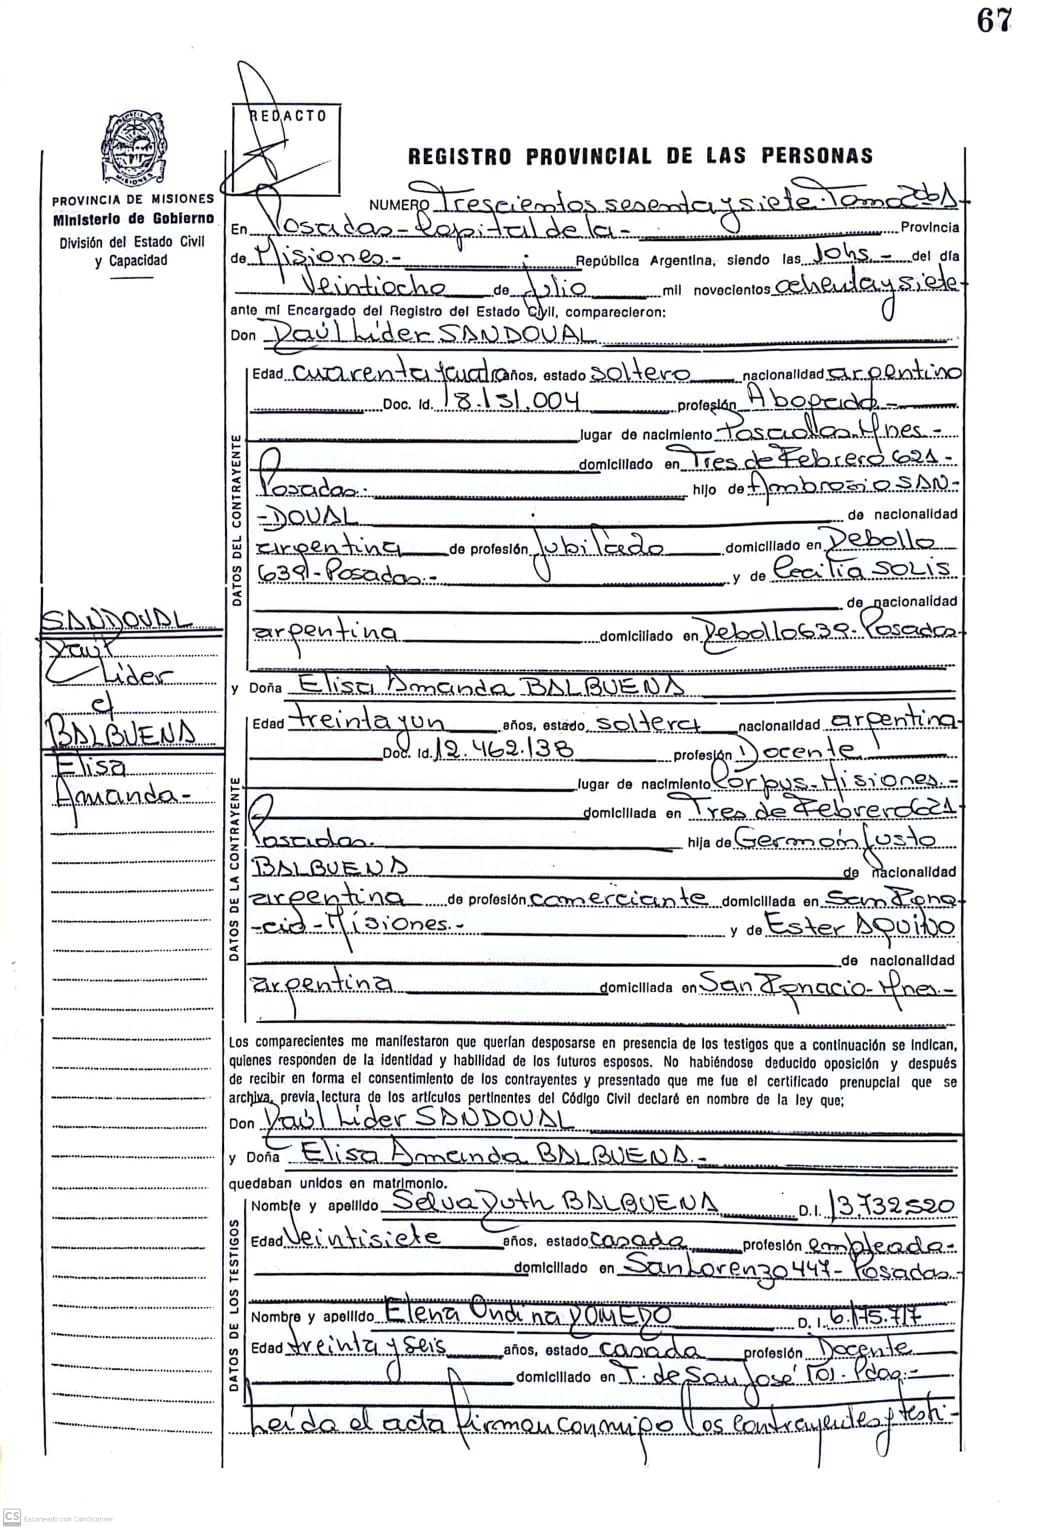 67
REDACTO
REGISTRO PROVINCIAL DE LAS PERSONAS
PROVINCIA DE MISIONES
Ministerio de Gobierno
División del Estado Civil
y Capacidad
NUMERO Trescientos sesenta y siete. Tomo
En Posadas - Capital de la - Provincia
de Misiones.- República Argentina, siendo las 10hs.- del día
Veintiocho de Julio mil novecientos ochenta y siete-
ante mí Encargado del Registro del Estado Civil, comparecieron:
Don Raúl Líder SANDOVAL
DATOS DEL CONTRAYENTE
Edad cuarenta y cuatro años, estado soltero nacionalidad argentino
Doc. Id. 8.151.004 profesión Abogado.-
lugar de nacimiento Posadas. Mnes.-
domiciliado en Tres de Febrero 621-
Posadas.- hijo de Ambrosio SAN-
-DOVAL de nacionalidad
argentina de profesión Jubilado domiciliado en Rebollo
639-Posadas.- y de Cecilia SOLIS
de nacionalidad
argentina domiciliado en Rebollo 639-Posadas-
SANDOVAL
Raúl
Líder
c/
BALBUENA
Elisa
Amanda-
y Doña Elisa Amanda BALBUENA
DATOS DE LA CONTRAYENTE
Edad treinta y un años, estado soltera nacionalidad argentina-
Doc. Id. 12.462.138 profesión Docente
lugar de nacimiento Corpus-Misiones.-
domiciliada en Tres de Febrero 621
Posadas. hija de Germán Justo
BALBUENA de nacionalidad
argentina de profesión comerciante domiciliada en San Igna-
-cio-Misiones.- y de Ester AQUINO
de nacionalidad
argentina domiciliada en San Ignacio-Mnes.-
Los comparecientes me manifestaron que querían desposarse en presencia de los testigos que a continuación se indican,
quienes responden de la identidad y habilidad de los futuros esposos. No habiéndose deducido oposición y después
de recibir en forma el consentimiento de los contrayentes y presentado que me fue el certificado prenupcial que se
archiva, previa lectura de los artículos pertinentes del Código Civil declaré en nombre de la ley que;
Don Raúl Líder SANDOVAL
y Doña Elisa Amanda BALBUENA.-
quedaban unidos en matrimonio.
DATOS DE LOS TESTIGOS
Nombre y apellido Selva Ruth BALBUENA D.I. 13.732.520
Edad Veintisiete años, estado casada profesión empleada-
domiciliado en San Lorenzo 447-Posadas-
Nombre y apellido Elena Ondina ROMERO D.I. 6.175.717
Edad treinta y seis años, estado casada profesión Docente
domiciliado en T. de San José 101. Pdas.-
Leída el acta firman conmigo los contrayentes y testi-
CS Escaneado con CamScanner